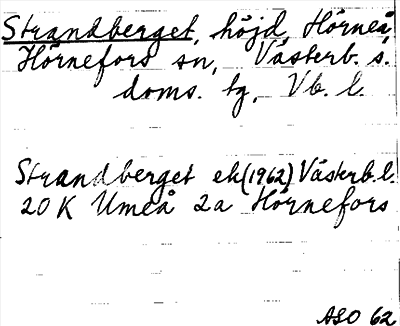 Strandberget, höjd, Hörneå,
Hörnefors sn, Västerb. s.
doms. tg, Vb. l.
Strandberget ek (1962) Västerb. l.
20 K Umeå 2a Hörnefors
ASO 62